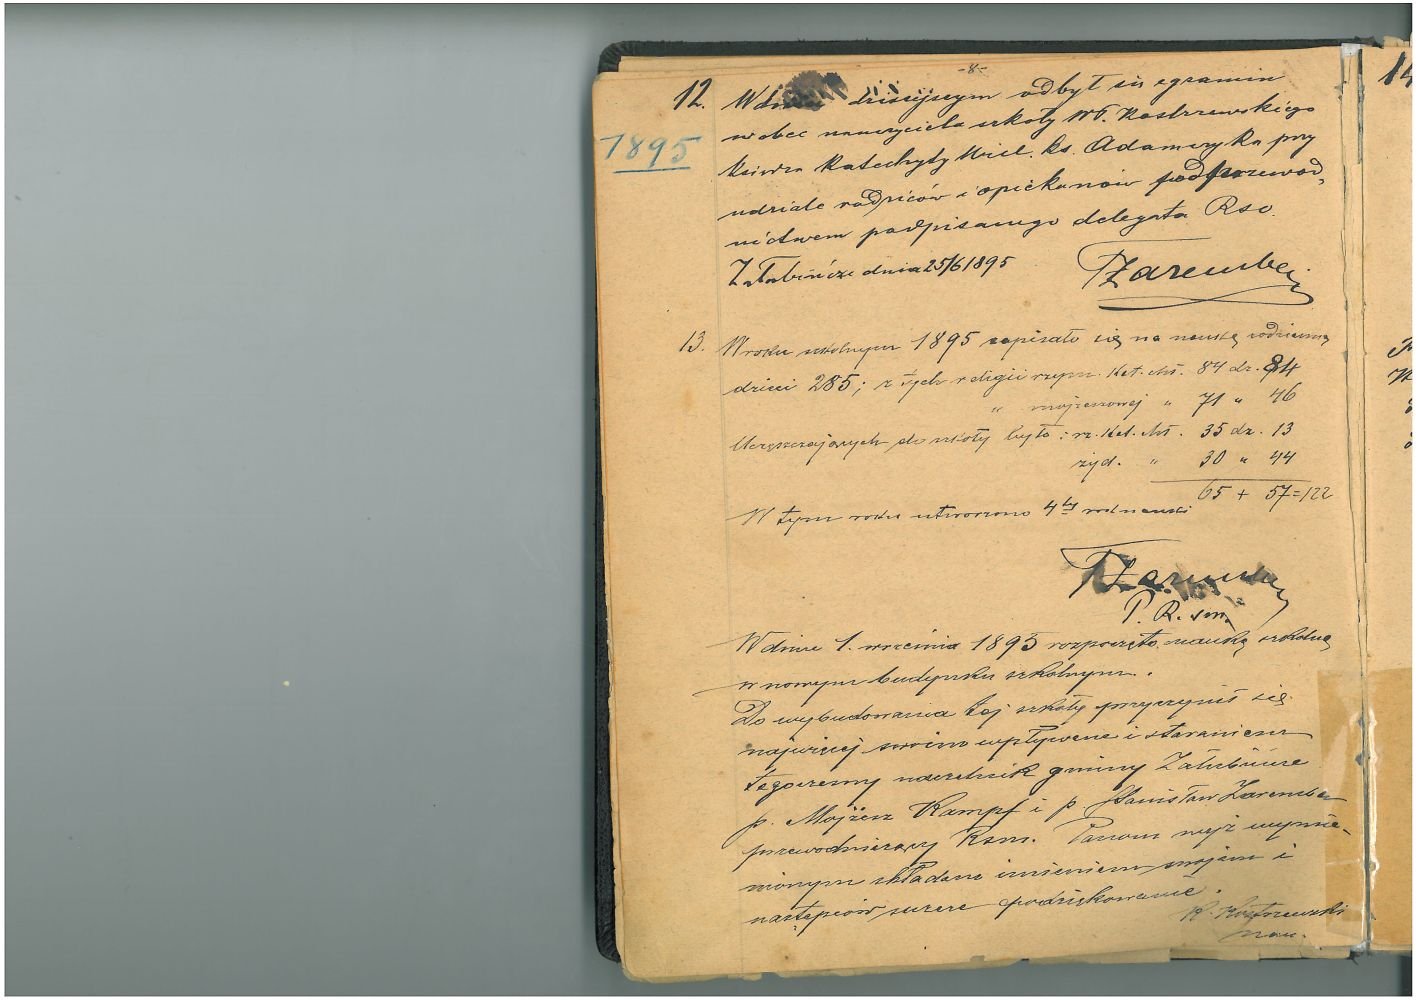 -8-
12. W dniu dzisiejszym odbył się egzamin
1895
wobec nauczyciela szkoły Wł. Kostrzewskiego
księdza Katechety Wiel. ks. Adamczyka przy
udziale rodziców i opiekunów pod przewod„
nictwem podpisanego delegata Rso.
Załubińcze dnia 25/6 1895
Zaremba
13. W roku szkolnym 1895 zapisało się na naukę codzienną
dzieci 285; z tych religii rzym. Kat. chł. 84 dz. 84
" mojżeszowej " 71 " 46
Uczęszczających do szkoły było: rz. Kat. chł. 35 dz. 13
żyd. " 30 " 44
65 + 57 = 122
W tym roku utworzono 4ty rok nauki
Zaremba
P. R. sm.
W dniu 1. września 1895 rozpoczęto naukę szkolną
w nowym budynku szkolnym.
Do wybudowania tej szkoły przyczynił się
najwięcej swoim wpływem i staraniem
tegoczesny naczelnik gminy Załubińcze
p. Mojżesz Kampf i p. Stanisław Zaremba
przewodniczący Rsm. Panom wyż wymie-
nionym składam imieniem swojem i
następców szczere podziękowanie.
K. Kostrzewski
nau.
14